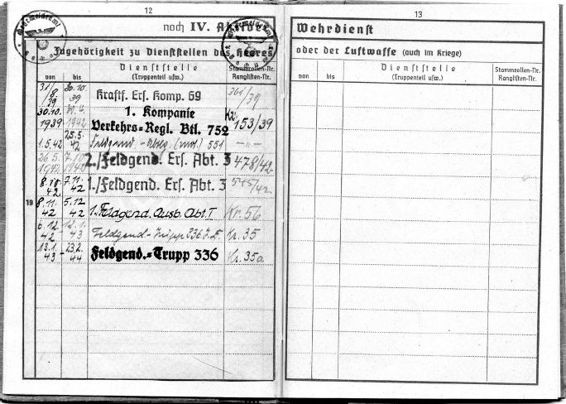 12
noch IV.
Zugehörigkeit zu Dienststellen des Heeres
von
bis
Dienststelle
(Truppenteil usw.)
Stammrollen-Nr.
Ranglisten-Nr.
Kraftf. Ers. Komp. 69
30.10.
1939
1. Kompanie
Verkehrs-Regl. Btl. 752
Kr. 153/39
1.5.42
25.5.
42
Feldgend. (mot) 551
2./Feldgend. Ers. Abt. 3
478/42
8.10.
42
7.11.
42
1./Feldgend. Ers. Abt. 3
19
8.11.
42
5.12.
42
1. Feldgend. Ausb. Abt. I
Kr. 56
6.12.
42
Feldgend-Trupp 336
Kr. 35
13.1.
43
23.2.
44
Feldgend.-Trupp 336
Kr. 35a
13
Wehrdienst
oder der Luftwaffe (auch im Kriege)
von
bis
Dienststelle
(Truppenteil usw.)
Stammrollen-Nr.
Ranglisten-Nr.